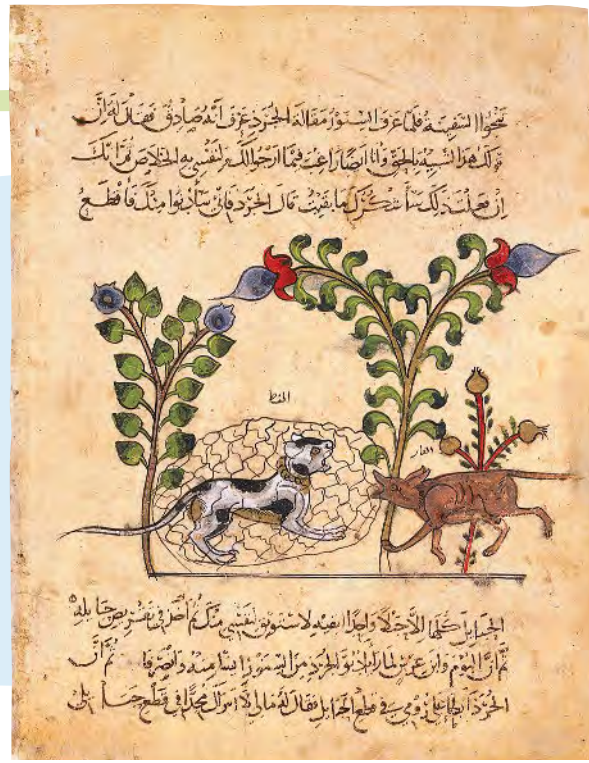 السفينة فلما عرف السنور مقالة الجرذ عرف انه صادق فقال له ان
قولك هذا لشبيه بالحق وانا ايضا راغب فيما ارجوا لك ولنفسي به الخلاص ثم انك
ان فعلت ذلك سأشكرك ما بقيت قال الجرذ فاني سأدنوا منك فاقطع
القط
الفار
الحبايل كلها الا حبلا واحدا ابقيه لاستوثق لنفسي منك ثم اخذ في تقريض حبايله
ثم ان البوم وابن عرس لما رايا دنو الجرذ من السنور ايسا منه وانصرفا ثم ان
الجرذ ابطا على رومي في قطع الحبايل فقال له مالي لا اراك مجدا في قطع حبايلي